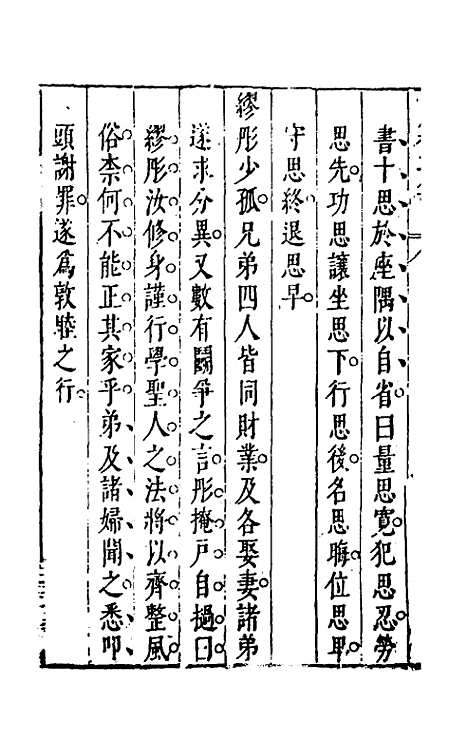 書十思於座隅以自省曰量思寬犯思忍勞
思先功思讓坐思下行思後名思晦位思卑
守思終退思早
繆彤少孤兄弟四人皆同財業及各娶妻諸弟
遂求分異又數有鬪爭之言彤掩戶自撾曰
繆彤汝修身謹行學聖人之法將以齊整風
俗柰何不能正其家乎弟及諸婦聞之悉叩
頭謝罪遂爲敦睦之行